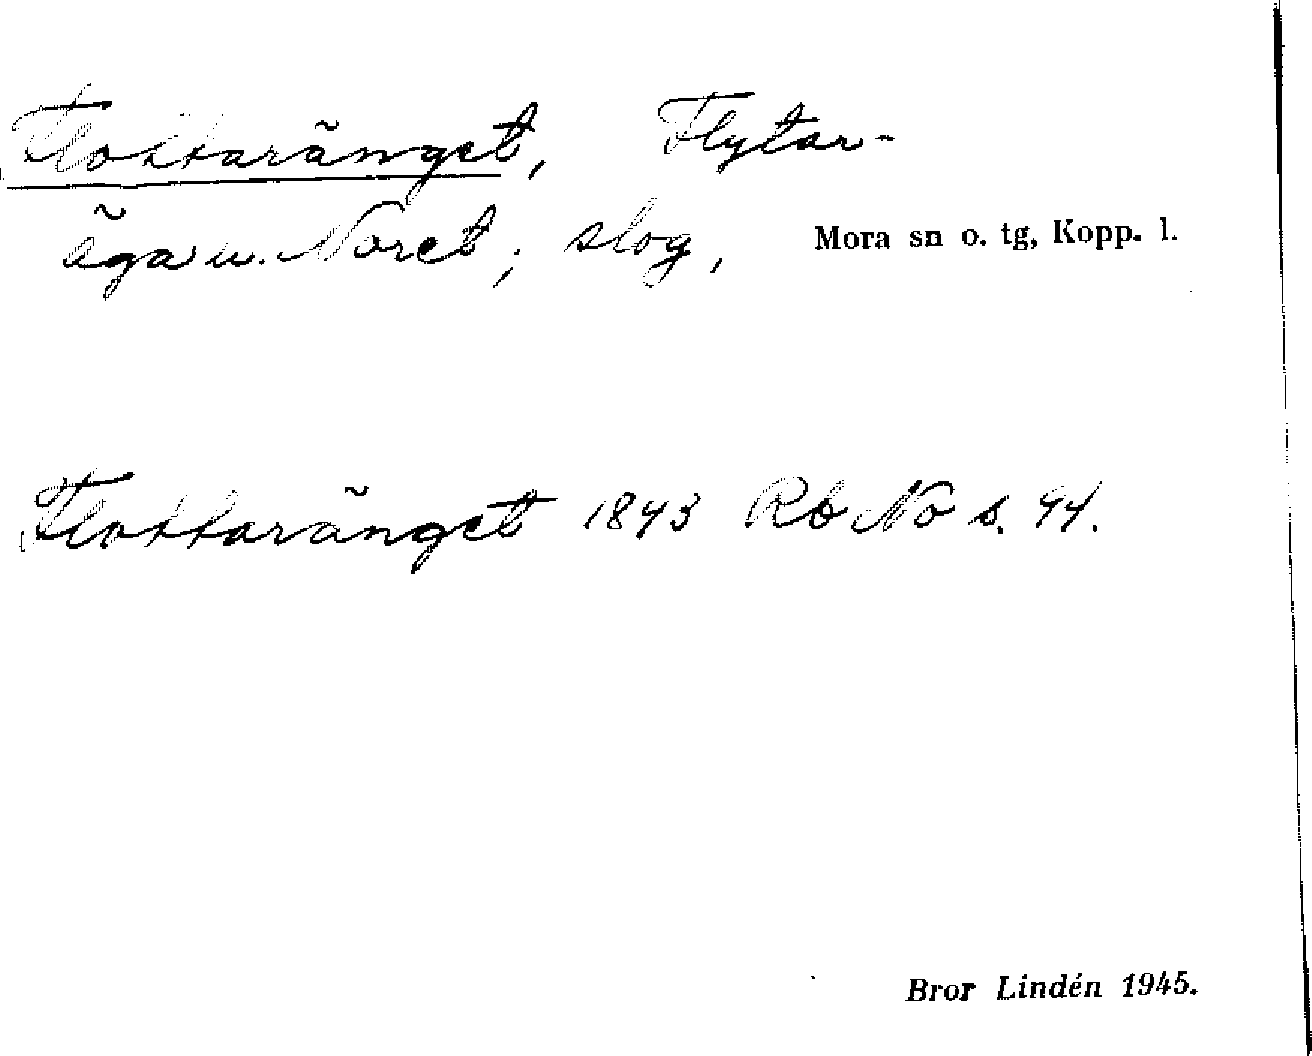 Flottaränget, Flytar-
äga u. Noret; slog,
Mora sn o. tg, Kopp. l.
Flottaränget 1843 Rb No s. 94.
Bror Lindén 1945.